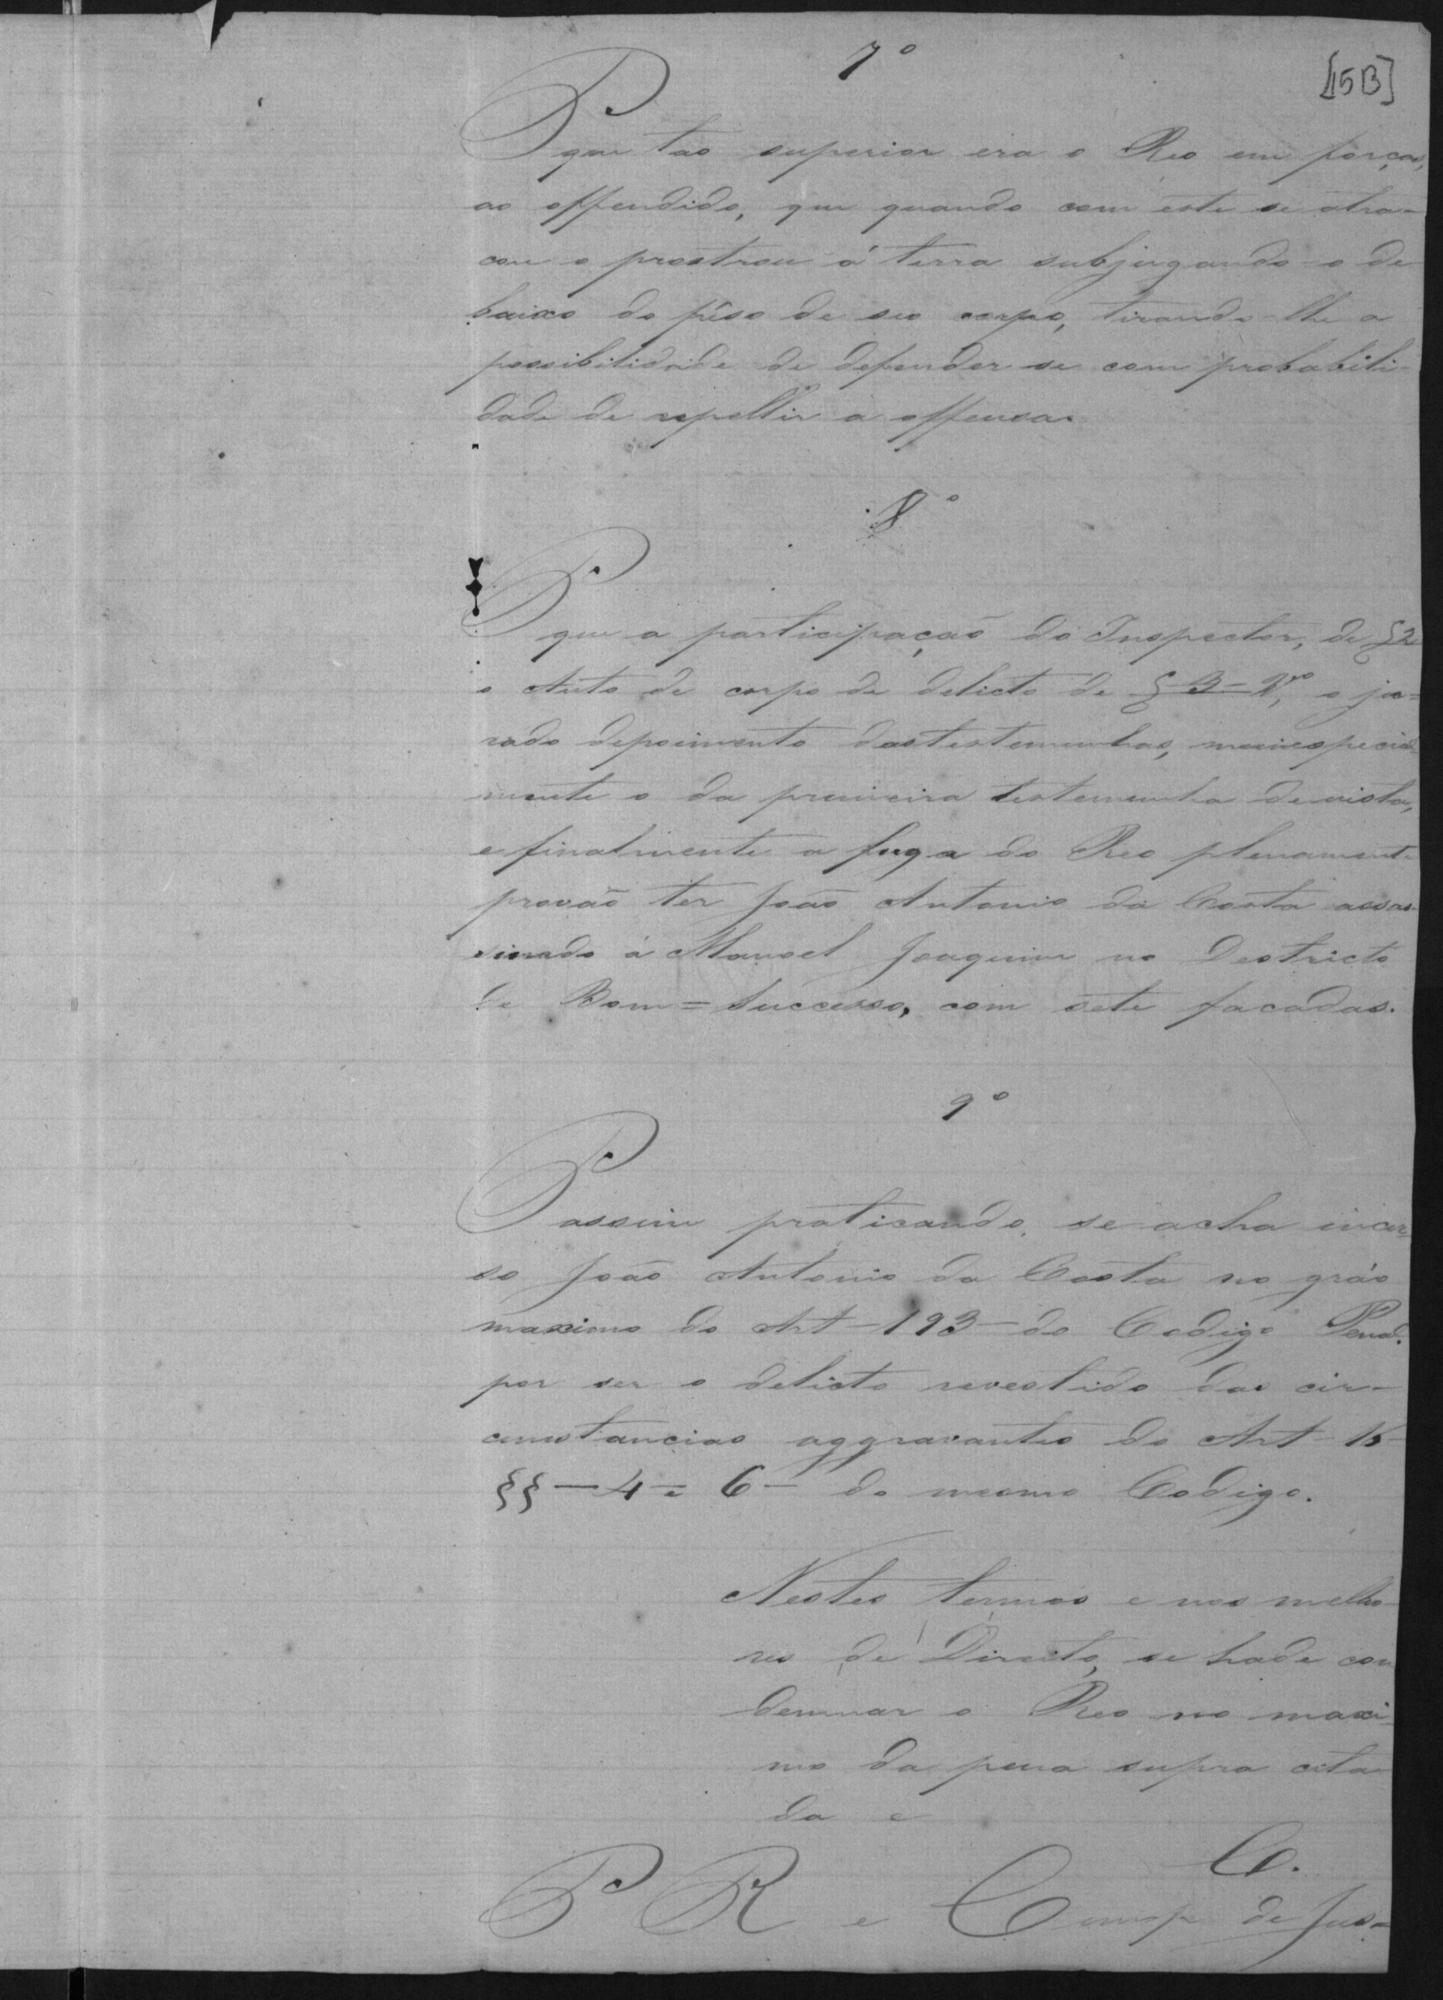 7º
[15B]
P que tao superior era o Reo em forças,
ao offendido, que quando com este se atra-
cou o prostrou á terra subjugando-o de
baixo do pêso de seo corpo, tirando-lhe a
possibilidade de defender se com probabili-
dade de repellir a offensa.
8º
P que a participação do Inspector, de § 2
o Auto de corpo de delicto de § 3 - Vº, o ju-
rado depoimento das testemunhas, mais especial
mente o da primeira testemunha de vista,
e finalmente a fuga do Reo plenamente
provão ter João Antonio da Costa assas-
sinado á Manoel Joaquim no Destricto
de Bom=Successo, com sete facadas.
9º
P assim praticando, se acha incur
so João Antonio da Costa no gráo
maximo do Art - 193 - do Codigo Penal.
por ser o delicto revestido das cir-
cunstancias aggravantes do Art - 15 -
§§ - 4 - e 6 - do mesmo Codigo.
Nestes termos e nos melho-
res de Direito, se hade con
demnar o Reo no maxi-
mo da pena supra cita
da e
C.
P R e Cump. de Jus-